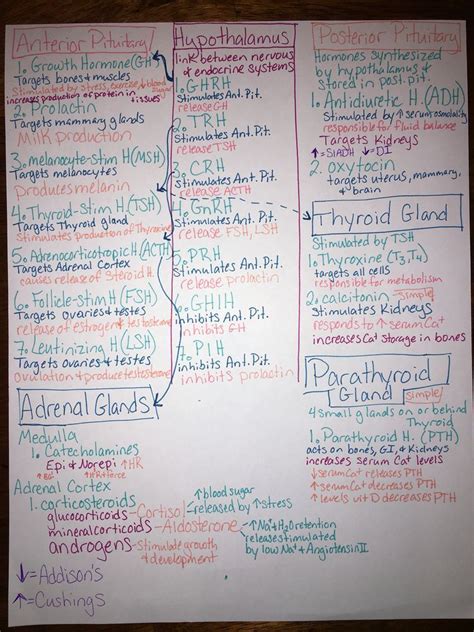 Anterior Pituitary
1. Growth Hormone (GH)
Targets bones & muscles
Stimulated by stress, exercise, ↓ blood sugar
increases production of protein in tissues
2. Prolactin
Targets mammary glands
Milk production
3. melanocyte-stim H (MSH)
Targets melanocytes
Produles melanin
4. Thyroid-Stim H (TSH)
Targets Thyroid gland
Stimulates production of Thyroxine
5. Adrenocorticotropic H (ACTH)
Targets Adrenal Cortex
causes release of Steroid H.
6. Follicle-stim H (FSH)
Targets ovaries & testes
release of estrogen & testosterone
7. Leutinizing H (LSH)
Targets ovaries & testes
Ovulation & produce testosterone
Hypothalamus
link between nervous
& endocrine systems
1. GHRH
Stimulates Ant. Pit.
release GH
2. TRH
Stimulates Ant. Pit.
release TSH
3. CRH
Stimulates Ant. Pit.
release ACTH
4. GnRH
Stimulates Ant. Pit.
release FSH, LSH
5. PRH
Stimulates Ant. Pit.
release prolactin
6. GHIH
inhibits Ant. Pit.
inhibits GH
7. PIH
inhibits Ant. Pit.
inhibits prolactin
Posterior Pituitary
Hormones synthesized
by hypothalamus &
stored in post. pit.
1. Antidiuretic H. (ADH)
Stimulated by ↑ serum osmolality
responsible for fluid balance
Targets Kidneys
↑=SIADH ↓=DI
2. oxytocin
targets uterus, mammary,
& brain
Thyroid Gland
Stimulated by TSH
1. Thyroxine (T3, T4)
targets all cells
responsible for metabolism
2. calcitonin simple
Stimulates Kidneys
responds to ↑ serum Ca+
increases Ca+ storage in bones
Parathyroid
Gland simple
4 small glands on or behind
Thyroid
1. Parathyroid H. (PTH)
acts on bones, GI, & Kidneys
increases serum Ca+ levels
↓ serum Ca+ releases PTH
↑ serum Ca+ decreases PTH
↑ levels vit D decreases PTH
Adrenal Glands
Medulla
1. Catecholamines
Epi & Norepi ↑HR
↑BG ↑HR+force
Adrenal Cortex
1. corticosteroids
glucocorticoids - Cortisol
↑ blood sugar
released by ↑ stress
mineralcorticoids - Aldosterone
↑ Na+ + H2O retention
release stimulated
by low Na+ + Angiotensin II
androgens - Stimulate growth
& development
↓=Addison's
↑=Cushings